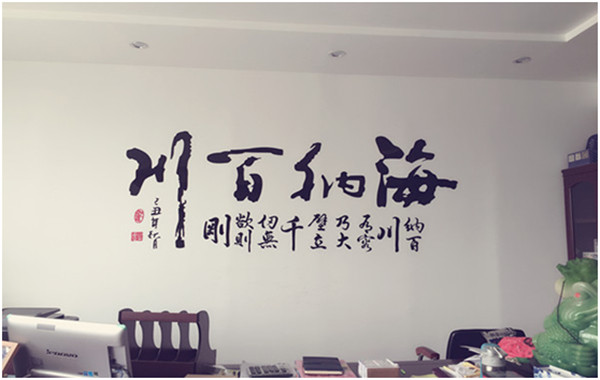 海纳百川
纳百
川
有容
乃大
壁立
千
仞無
欲則
剛
己丑年秋月
lenovo